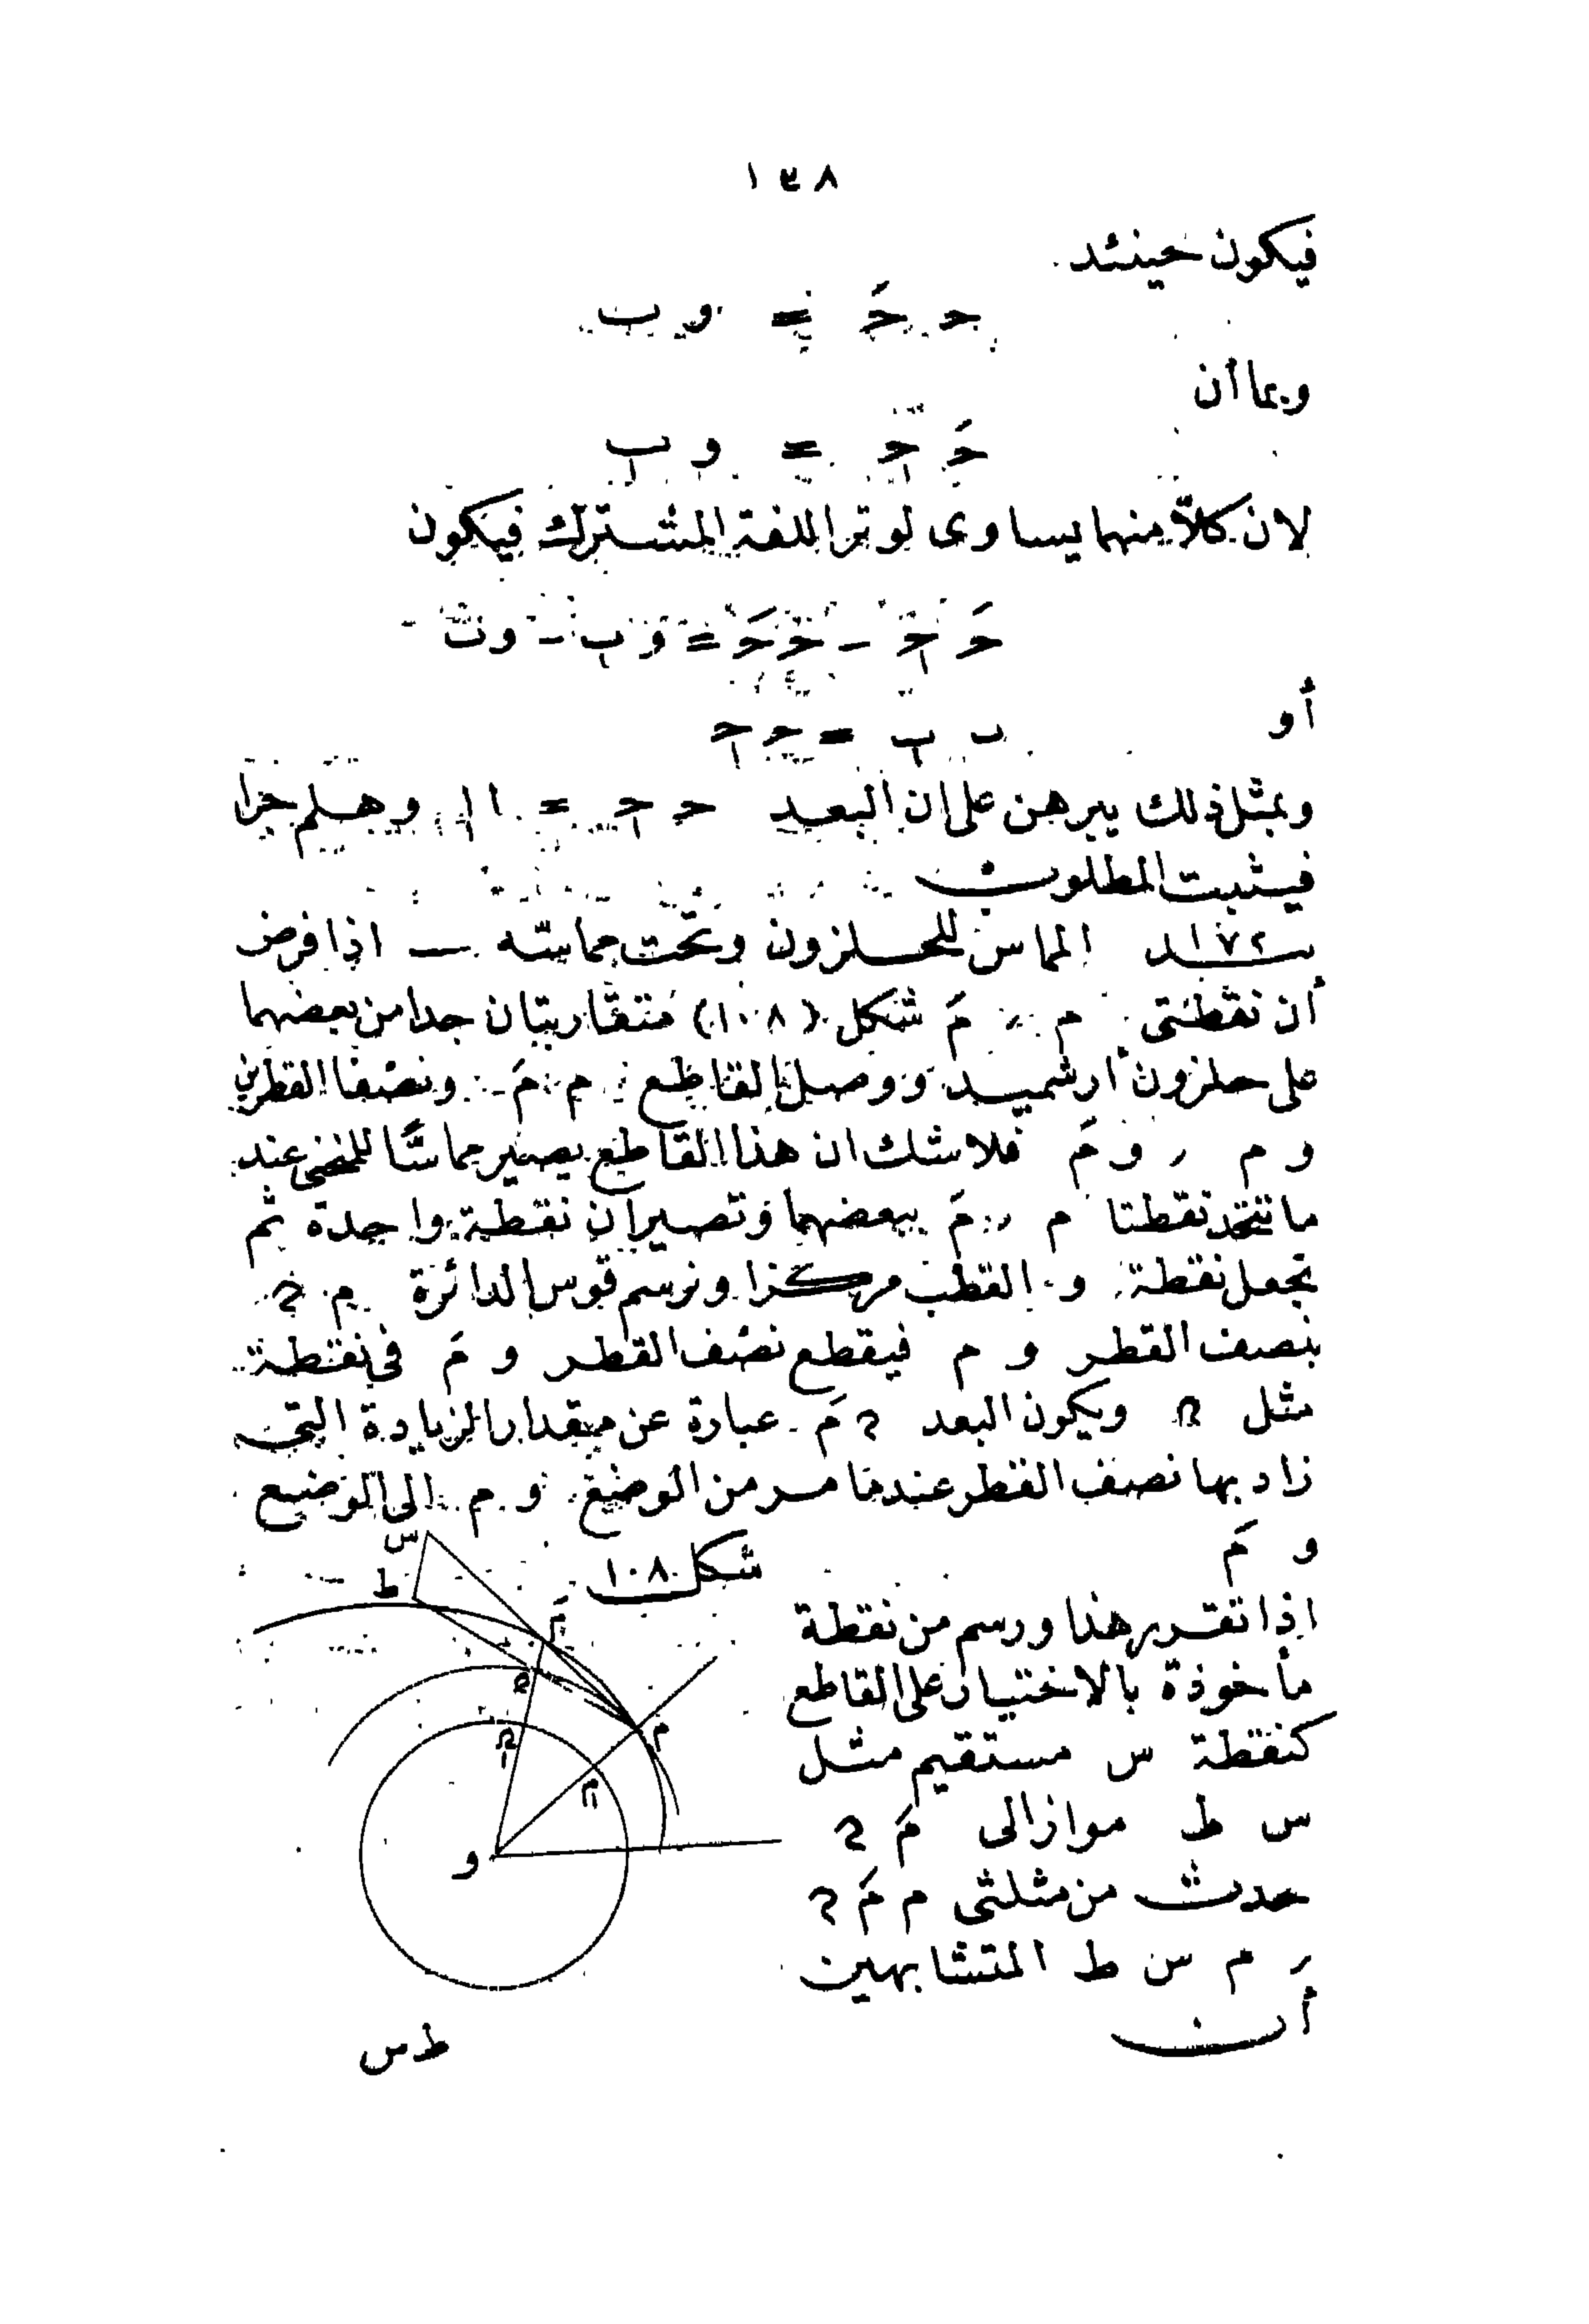 ١٣٨
فيكون حينئد
حـ حـَ = و ب
وبما أن
حـَ حـ = و ب
لان كلاّ منهما يساوى لوتر اللفة المشترك فيكون
حـَ حـ − حـ حـَ = و ب − و ب
أو
ب ب = حـ حـ
وبمثل ذلك يبرهن على ان البعد حـ حـ = ا ا وهلم جرا
فيثبت المطلوب
١٧٢ـد المماس للحلزون وتحت مماسّه — اذا فرض
أن نقطتى م ر مَ شكل (١٠٨) متقاربتان جدا من بعضهما
على حلزون أرشميد ووصل القاطع م مَ ونصفا القطرين
و م ر و مَ فلاشك ان هذا القاطع يصير مماسّا للمنحنى عند
ما تتحد نقطتا م ر مَ ببعضهما وتصيران نقطة واحدة ثم
تجعل نقطة و القطب مركزا ونرسم قوس الدائرة م ῀ن
بنصف القطر و م فيقطع نصف القطر و مَ فى نقطة
مثل ن ويكون البعد ن مَ عبارة عن مقدار الزيادة التى
زاد بها نصف القطر عندما مر من الوضع و م الى الوضع
و مَ
شكل ١٠٨
اذا تقرر هذا ورسم من نقطة
مأخوذة بالاختيار على القاطع
كنقطة س مستقيم مثل
س ط مواز الى مَ ن
حدث من مثلثى م مَ ن
ر م س ط المتشابهين
أن
س
ط
مَ
ن
م
ن
ن
و
ط س